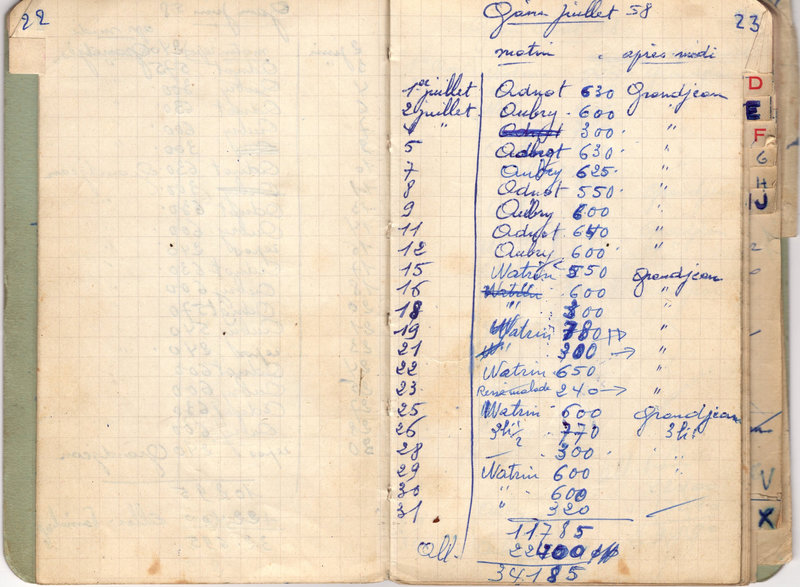 22
Gain juillet 58
23
matin . après midi
1er juillet Adnot 630 Grandjean
2 juillet. Aubry . 600 "
4 " Adnot 300 . "
5 Adnot 630 . "
7 Aubry 625 . "
8 Adnot 550 . "
9 Aubry 600 "
11 Adnot 640 "
12 Aubry 600 . "
15 Watrin 550 Grandjean
16 600 "
18 " 300 "
19 Watrin "
21 " → "
22 Watrin . 650 "
23 René malade 240 → "
25 Watrin 600 Grandjean
26 . 770
28 — . 300 . "
29 Watrin 600 "
30 " 600
31 " 320
11785
All. 22400
34185
D
E
F
G
H
J
V
X